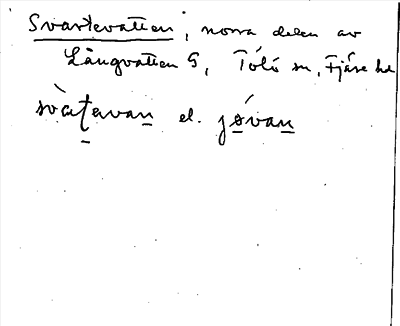 Svartevatten, norra delen av
Långvatten S, Tölö sn, Fjäre hd
svàt̠avan̠ el. jö́van̠